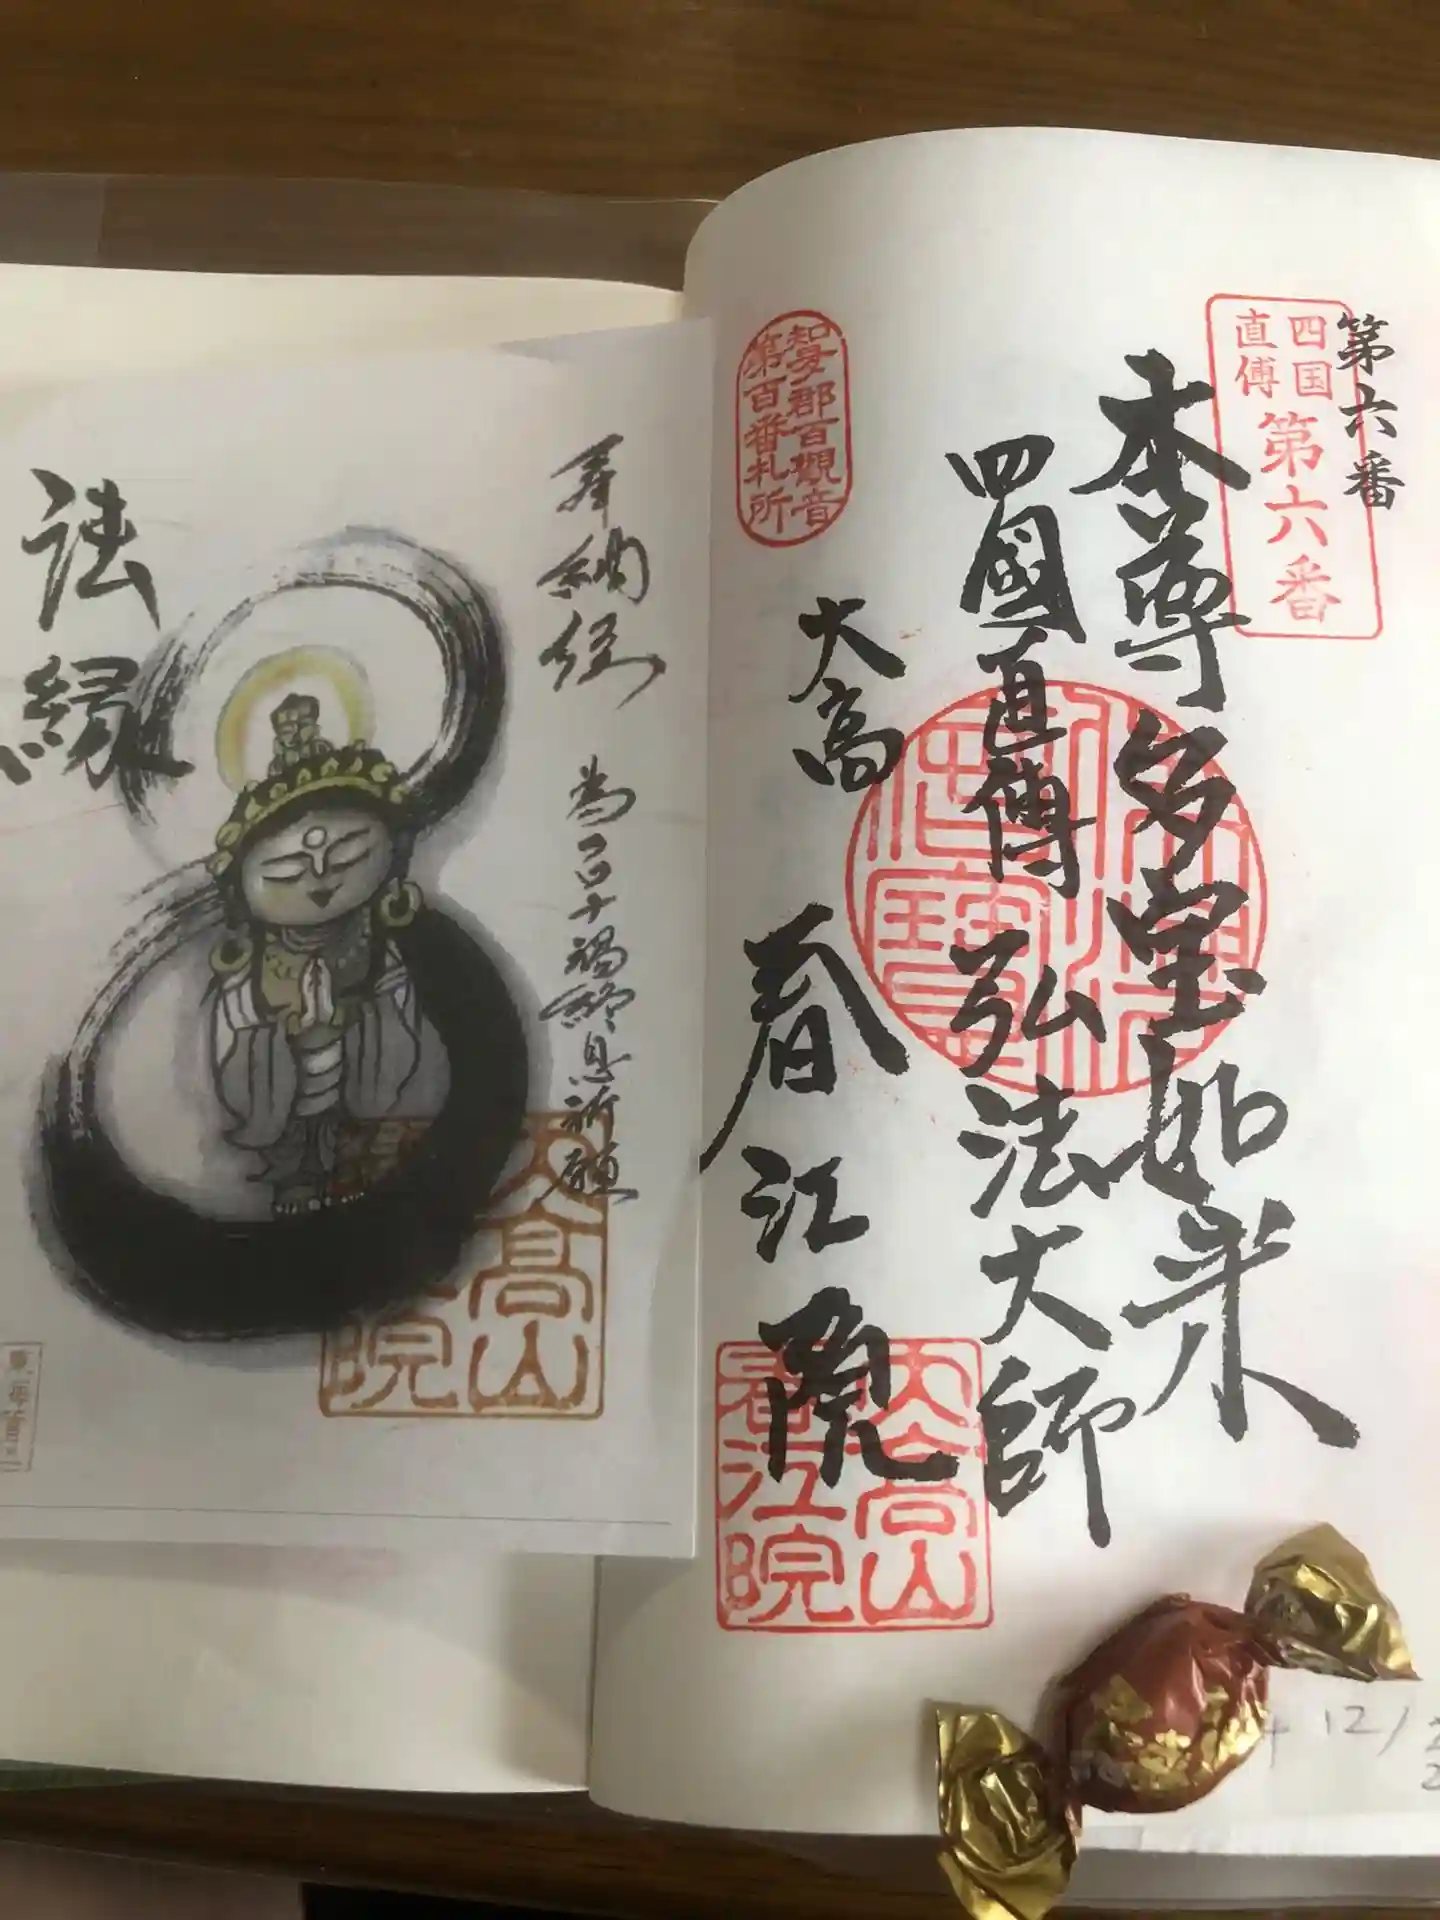 第六番
四国
直傅
第六番
本尊多宝如来
四國直傳 弘法大師
知多郡百観音
第百番札所
大高 春江院
大高山
春江院
奉納経
為コロナ禍終息祈願
法縁
大高山
院
12/